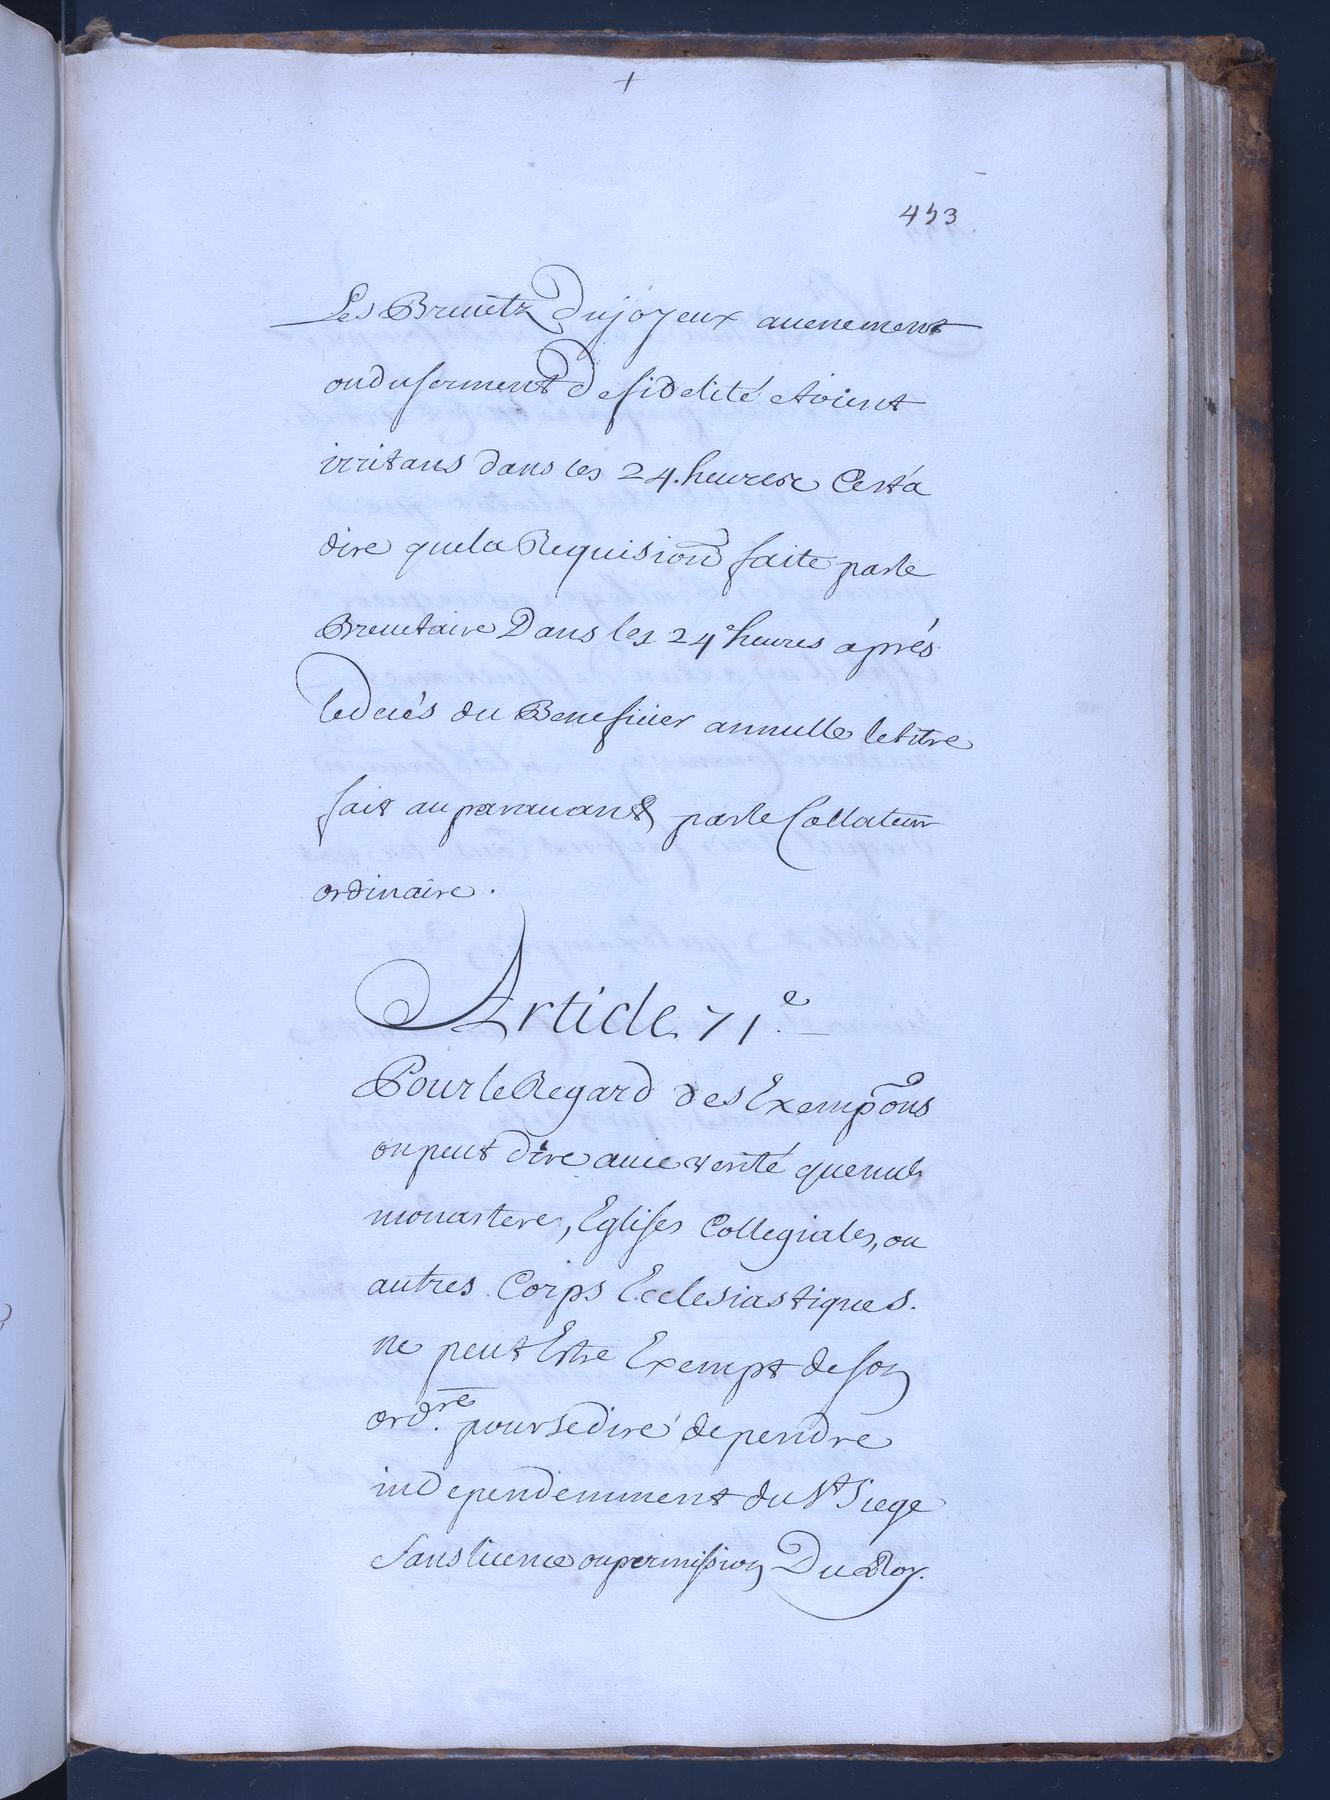 +
453
Les Breuetz Du joyeux auenement
ou du serment De fidelité étoient
irritans dans les 24. heures Cest a
dire que la Requision faite par le
Breuetaire Dans les 24 heures aprés
le decés du Beneficier annulle le titre
fait au parauant par le Collateur
ordinaire.
Article 71.e
Pour le Regard des Exempõns
on peut dire auec verité que nuls
monastere, Eglises Collegiales, ou
autres Corps Ecclesiastiques.
ne peut Estre Exempt de son
ord.re pour se dire dependre
independemment du St Siege
Sans licence ou permission Du Roy.